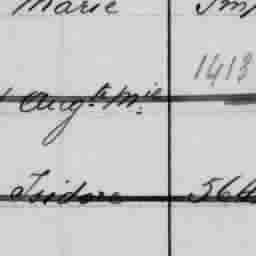 Marie
1413
Aug.te M.ie
Isidore 564